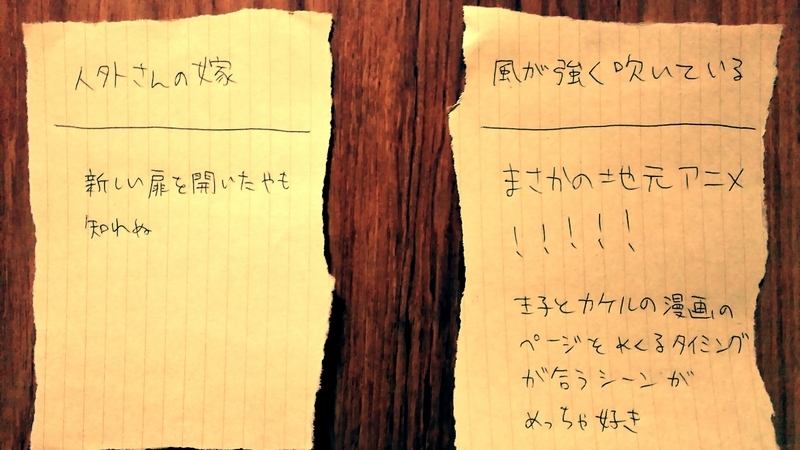 人外さんの嫁
新しい扉を開いたやも
知れぬ
風が強く吹いている
まさかの地元アニメ
！！！！！
王子とカケルの漫画の
ページをめくるタイミング
が合うシーンが
めっちゃ好き